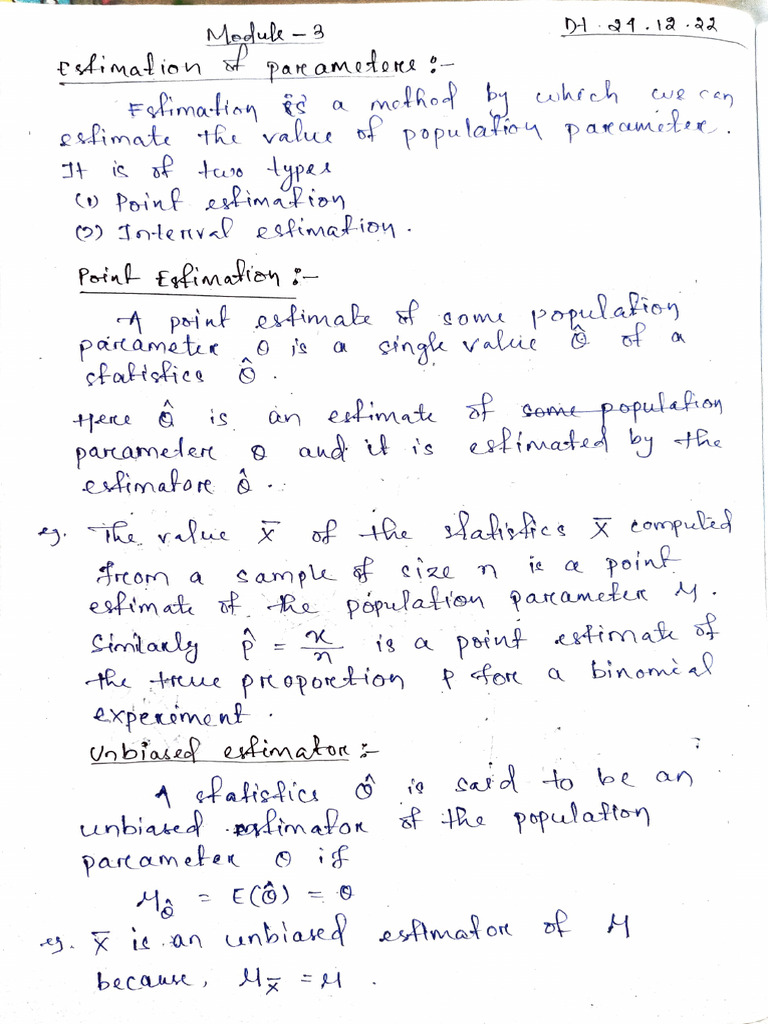 Module - 3
Dt. 24.12.22
Estimation of parameters :-
Estimation is a method by which we can
estimate the value of population parameter.
It is of two types
(1) Point estimation
(2) Interval estimation.
Point Estimation :-
A point estimate of some population
parameter θ is a single value θ̂ of a
statistics θ̂.
Here θ̂ is an estimate of some population
parameter θ and it is estimated by the
estimator θ̂.
eg. The value x̄ of the statistics X̄ computed
from a sample of size n is a point
estimate of the population parameter μ.
Similarly p̂ = x/n is a point estimate of
the true proportion p for a binomial
experiment.
Unbiased estimator :-
A statistics θ̂ is said to be an
unbiased estimator of the population
parameter θ if
μ_θ̂ = E(θ̂) = θ
eg. X̄ is an unbiased estimator of μ
because, μ_x̄ = μ.